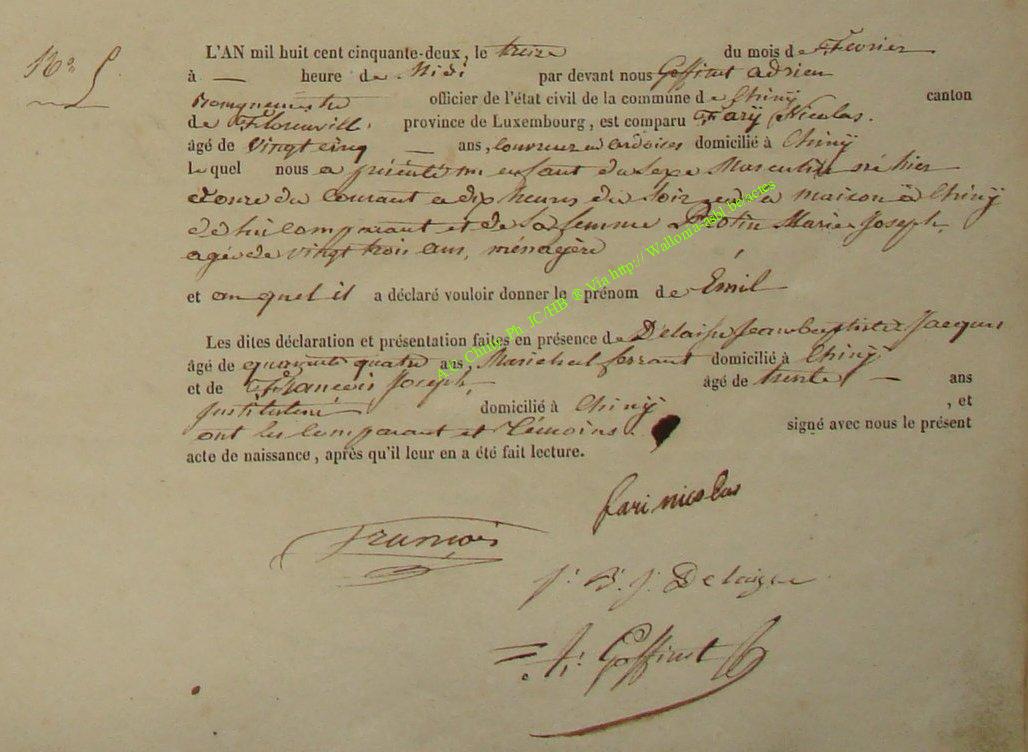 N° 5.
L'AN mil huit cent cinquante-deux, le treize du mois de Fevrier
à — heure de Midi par devant nous Goffinet adrien
Bourgmestre officier de l'état civil de la commune de Chiny canton
de Florenville. province de Luxembourg, est comparu Fary Nicolas.
âgé de vingt cinq — ans, couvreur en ardoises domicilié à Chiny
Lequel nous a présenté un enfant du sexe Masculin né hier
douze du courant a dix heures du soir en sa maison à Chiny
de lui comparant et de sa femme Marie Joseph,
agée de vingt trois ans, ménagère
et auquel il a déclaré vouloir donner le prénom de Émil
Les dites déclaration et présentation faites en présence de Delaisse Jean baptiste Jacques
âgé de quarante quatre ans, Marichal ferrant domicilié à Chiny
et de François Joseph, âgé de trente — ans
Instituteur domicilié à Chiny, et
ont les Comparant et Témoins. signé avec nous le présent
acte de naissance, après qu'il leur en a été fait lecture.
fari nicolas
François
J. B. J. Delaisse
A. Goffinet
Chiny Ph. JC/HB ® Via http:// Wallonia-asbl.be/actes